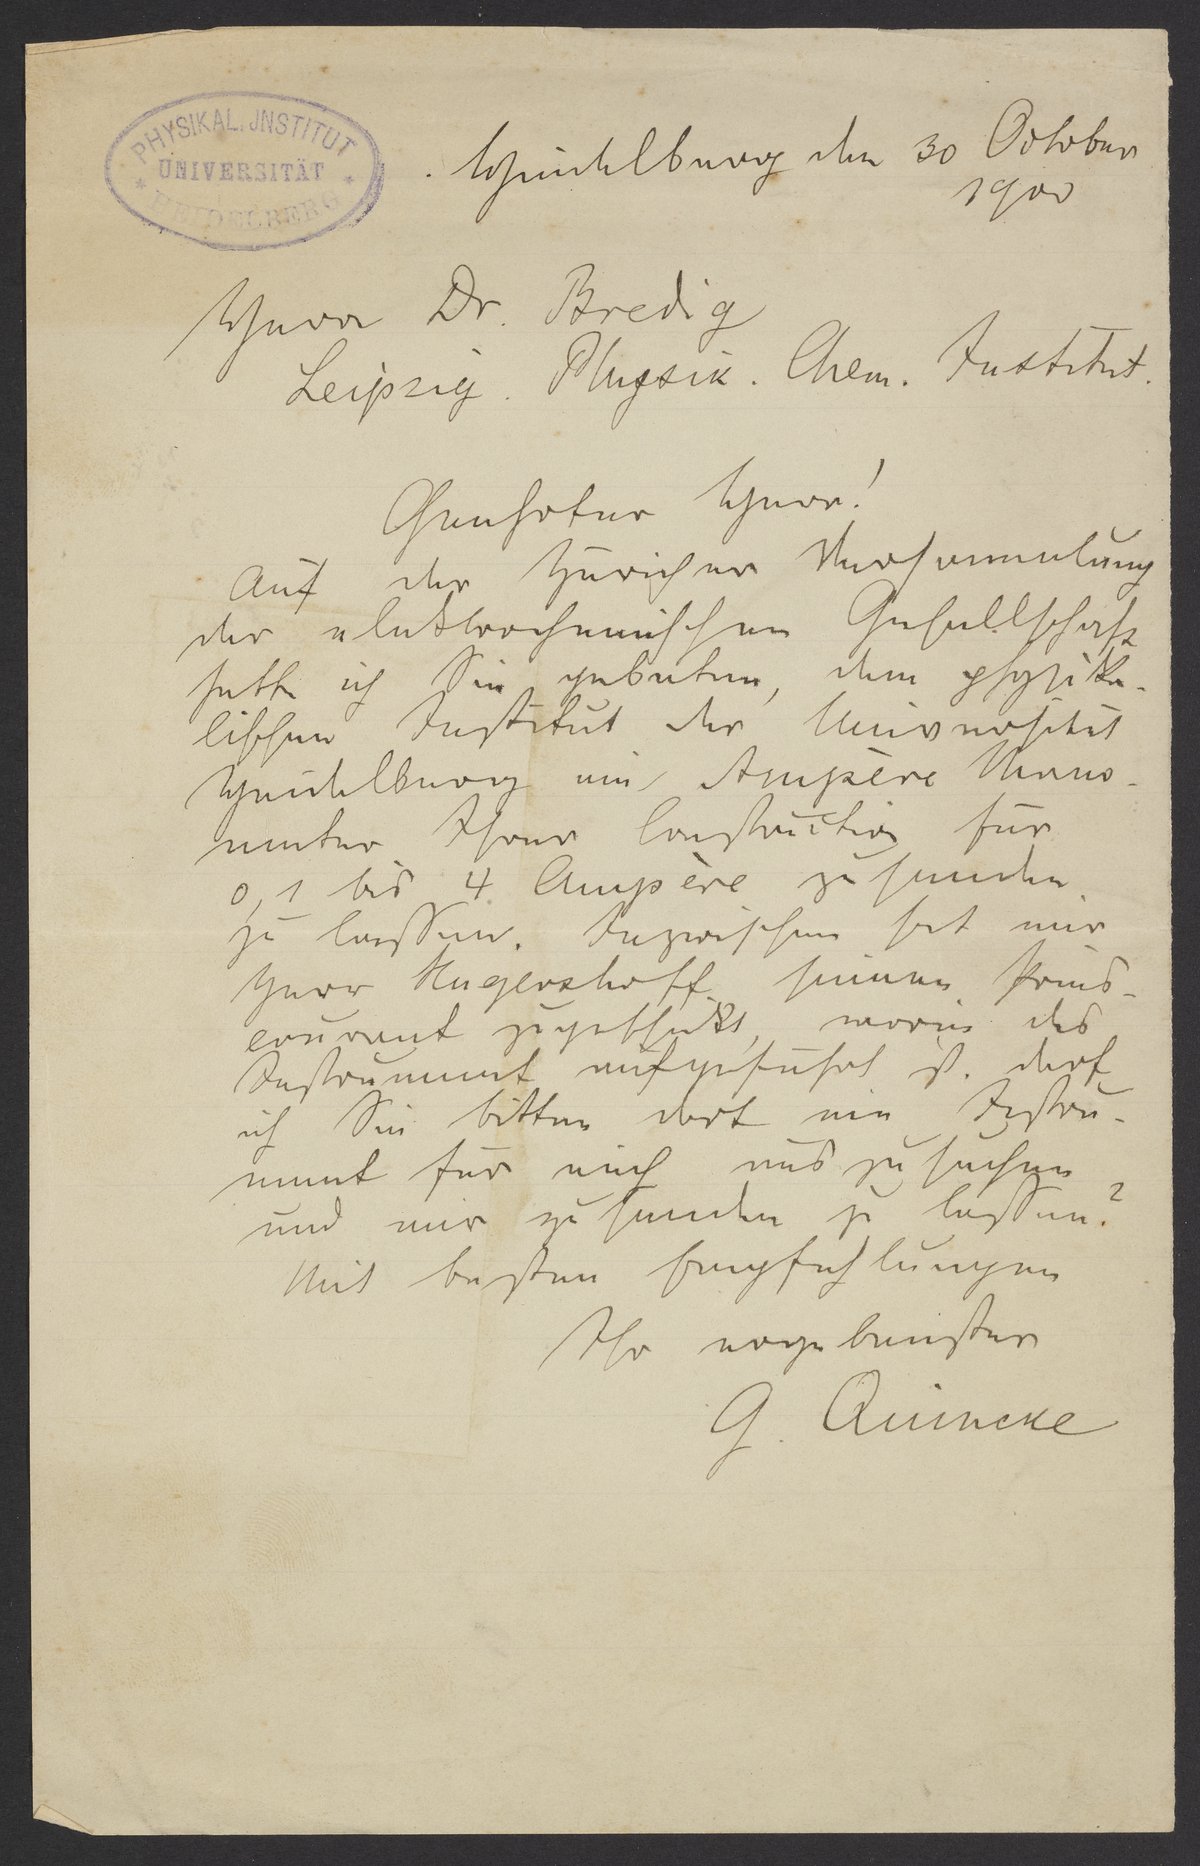 PHYSIKAL. JNSTITUT
UNIVERSITÄT
* HEIDELBERG *
Heidelberg den 30 October
1900
Herrn Dr. Bredig
Leipzig. Physik. Chem. Institut.
Geehrter Herr!
Auf der Züricher Versammlung
der elektrochemischen Gesellschaft
hatte ich Sie gebeten, dem physika-
lischen Institut der Universität
Heidelberg ein Ampère Mano-
meter Ihrer Construction für
0,1 bis 4 Ampère zusenden
zu lassen. Inzwischen hat mir
Herr Hugershoff seinen Preis-
courant zugeschickt, worin das
Instrument aufgeführt ist. Darf
ich Sie bitten dort ein Instru-
ment für mich auszusuchen
und mir zusenden zu lassen?
Mit besten Empfehlungen
Ihr ergebenster
G. Quincke